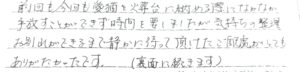 前回も今回も愛猫を火葬台に納める際になかなか
手放すことができず時間を要しましたが気持ちの整理
お別れができるまで静かに待って頂けたこと親族がとても
ありがたかったです。 (裏面に続きます)